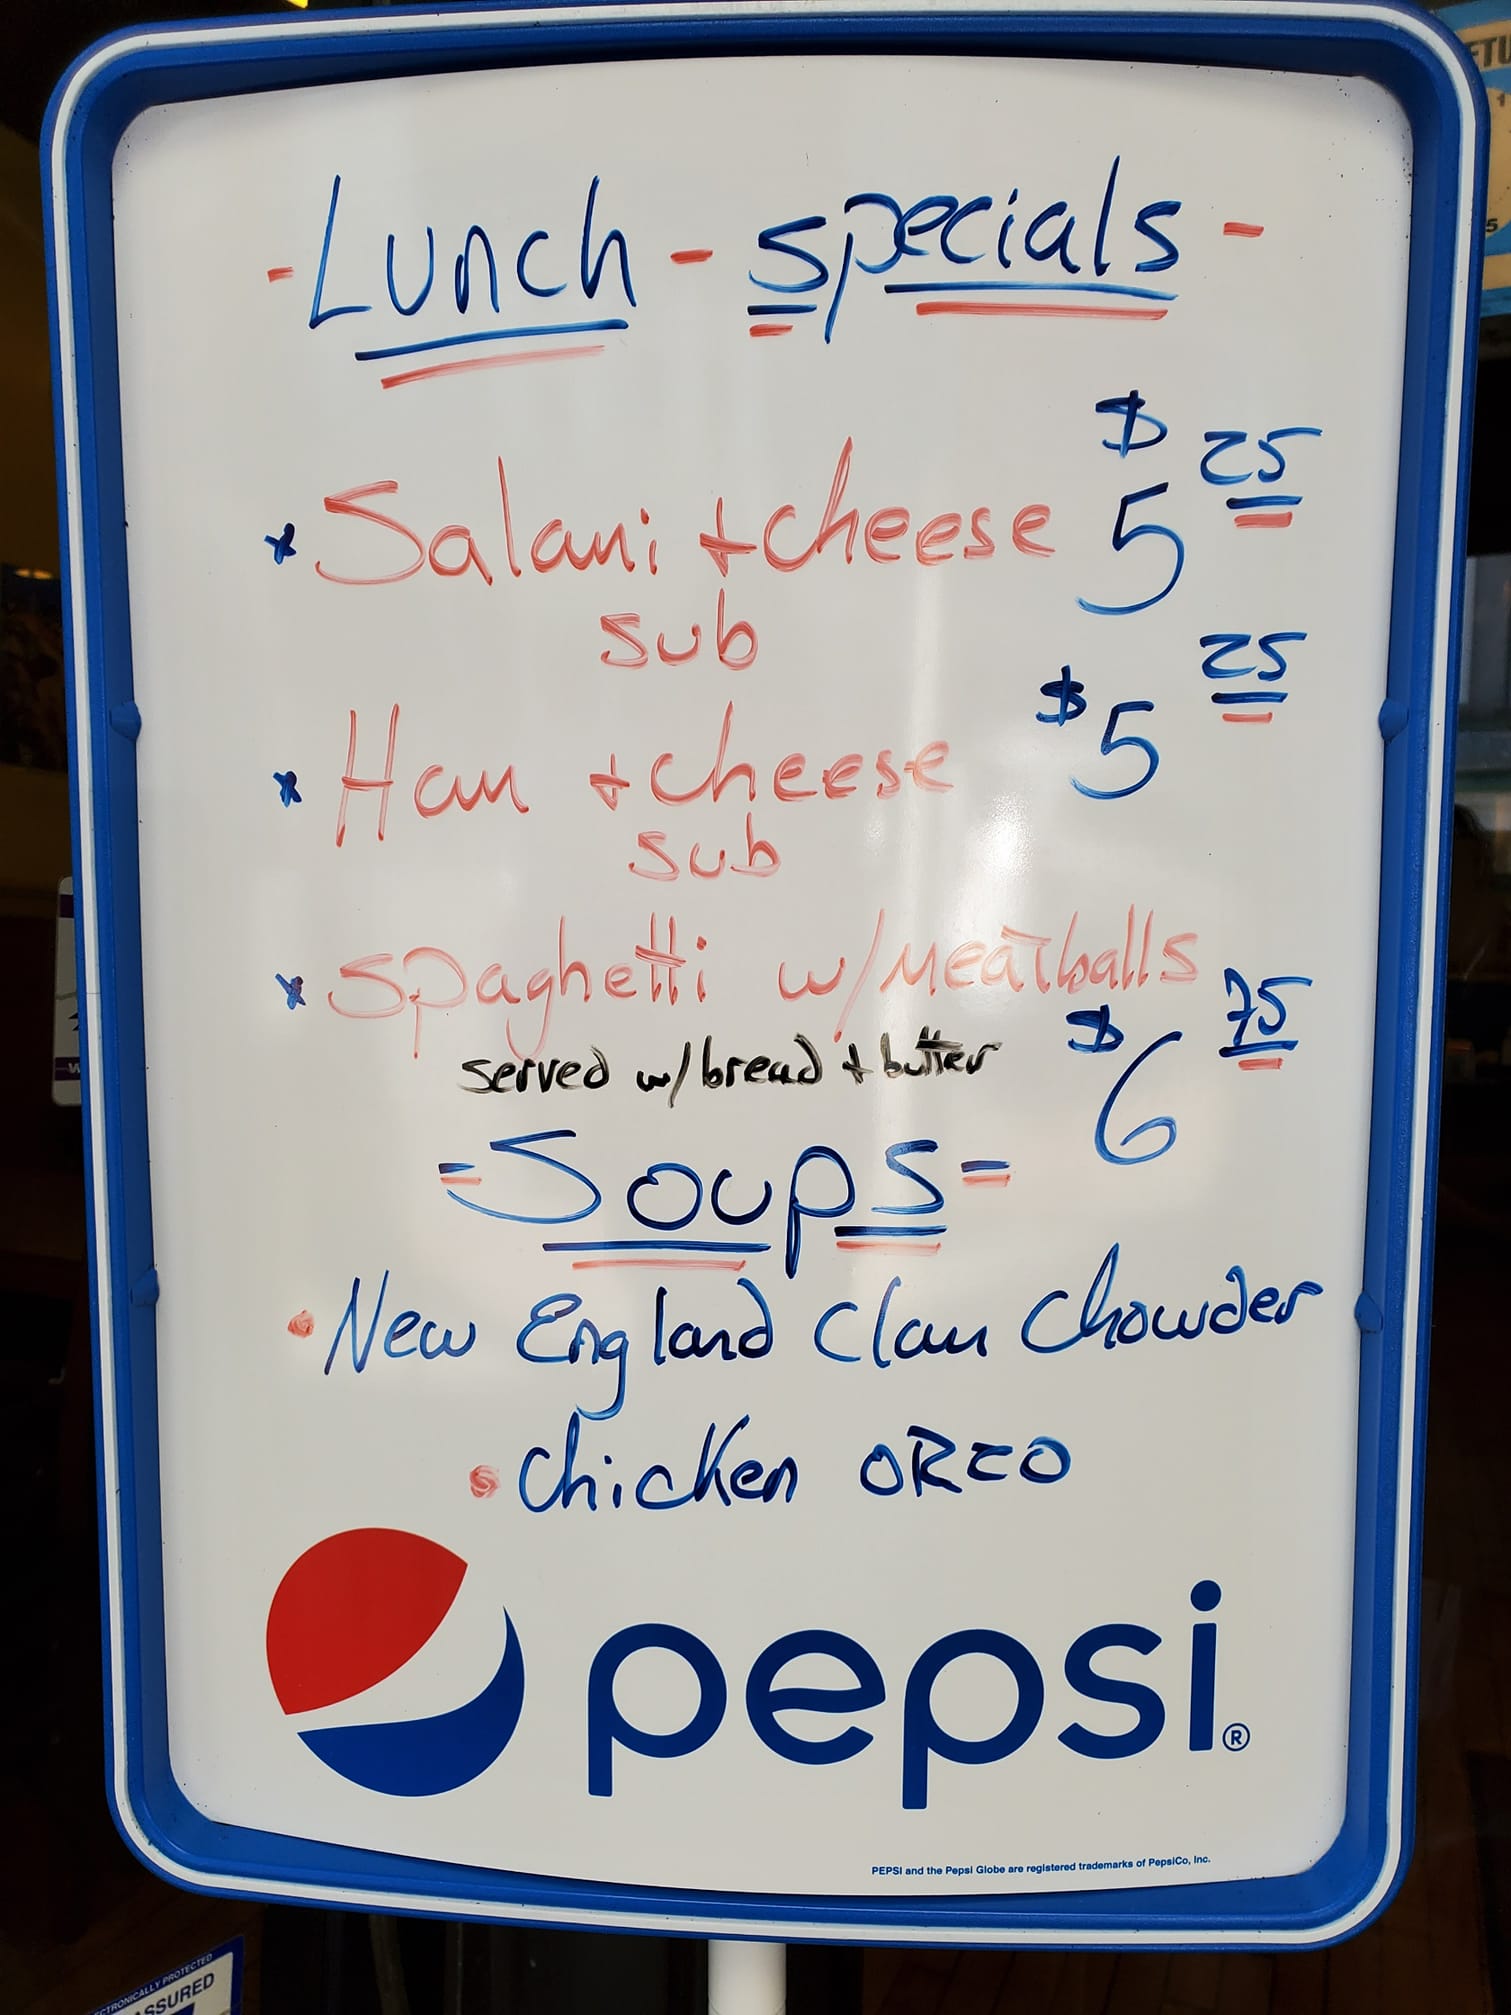 - Lunch - specials -
* Salami + cheese $5 25
sub
* Ham + cheese $5 25
sub
* Spaghetti w/ Meatballs
served w/ bread + butter $6 75
= Soups =
• New England Clam Chowder
• Chicken ORZO
pepsi®
PEPSI and the Pepsi Globe are registered trademarks of PepsiCo, Inc.
ASSURED